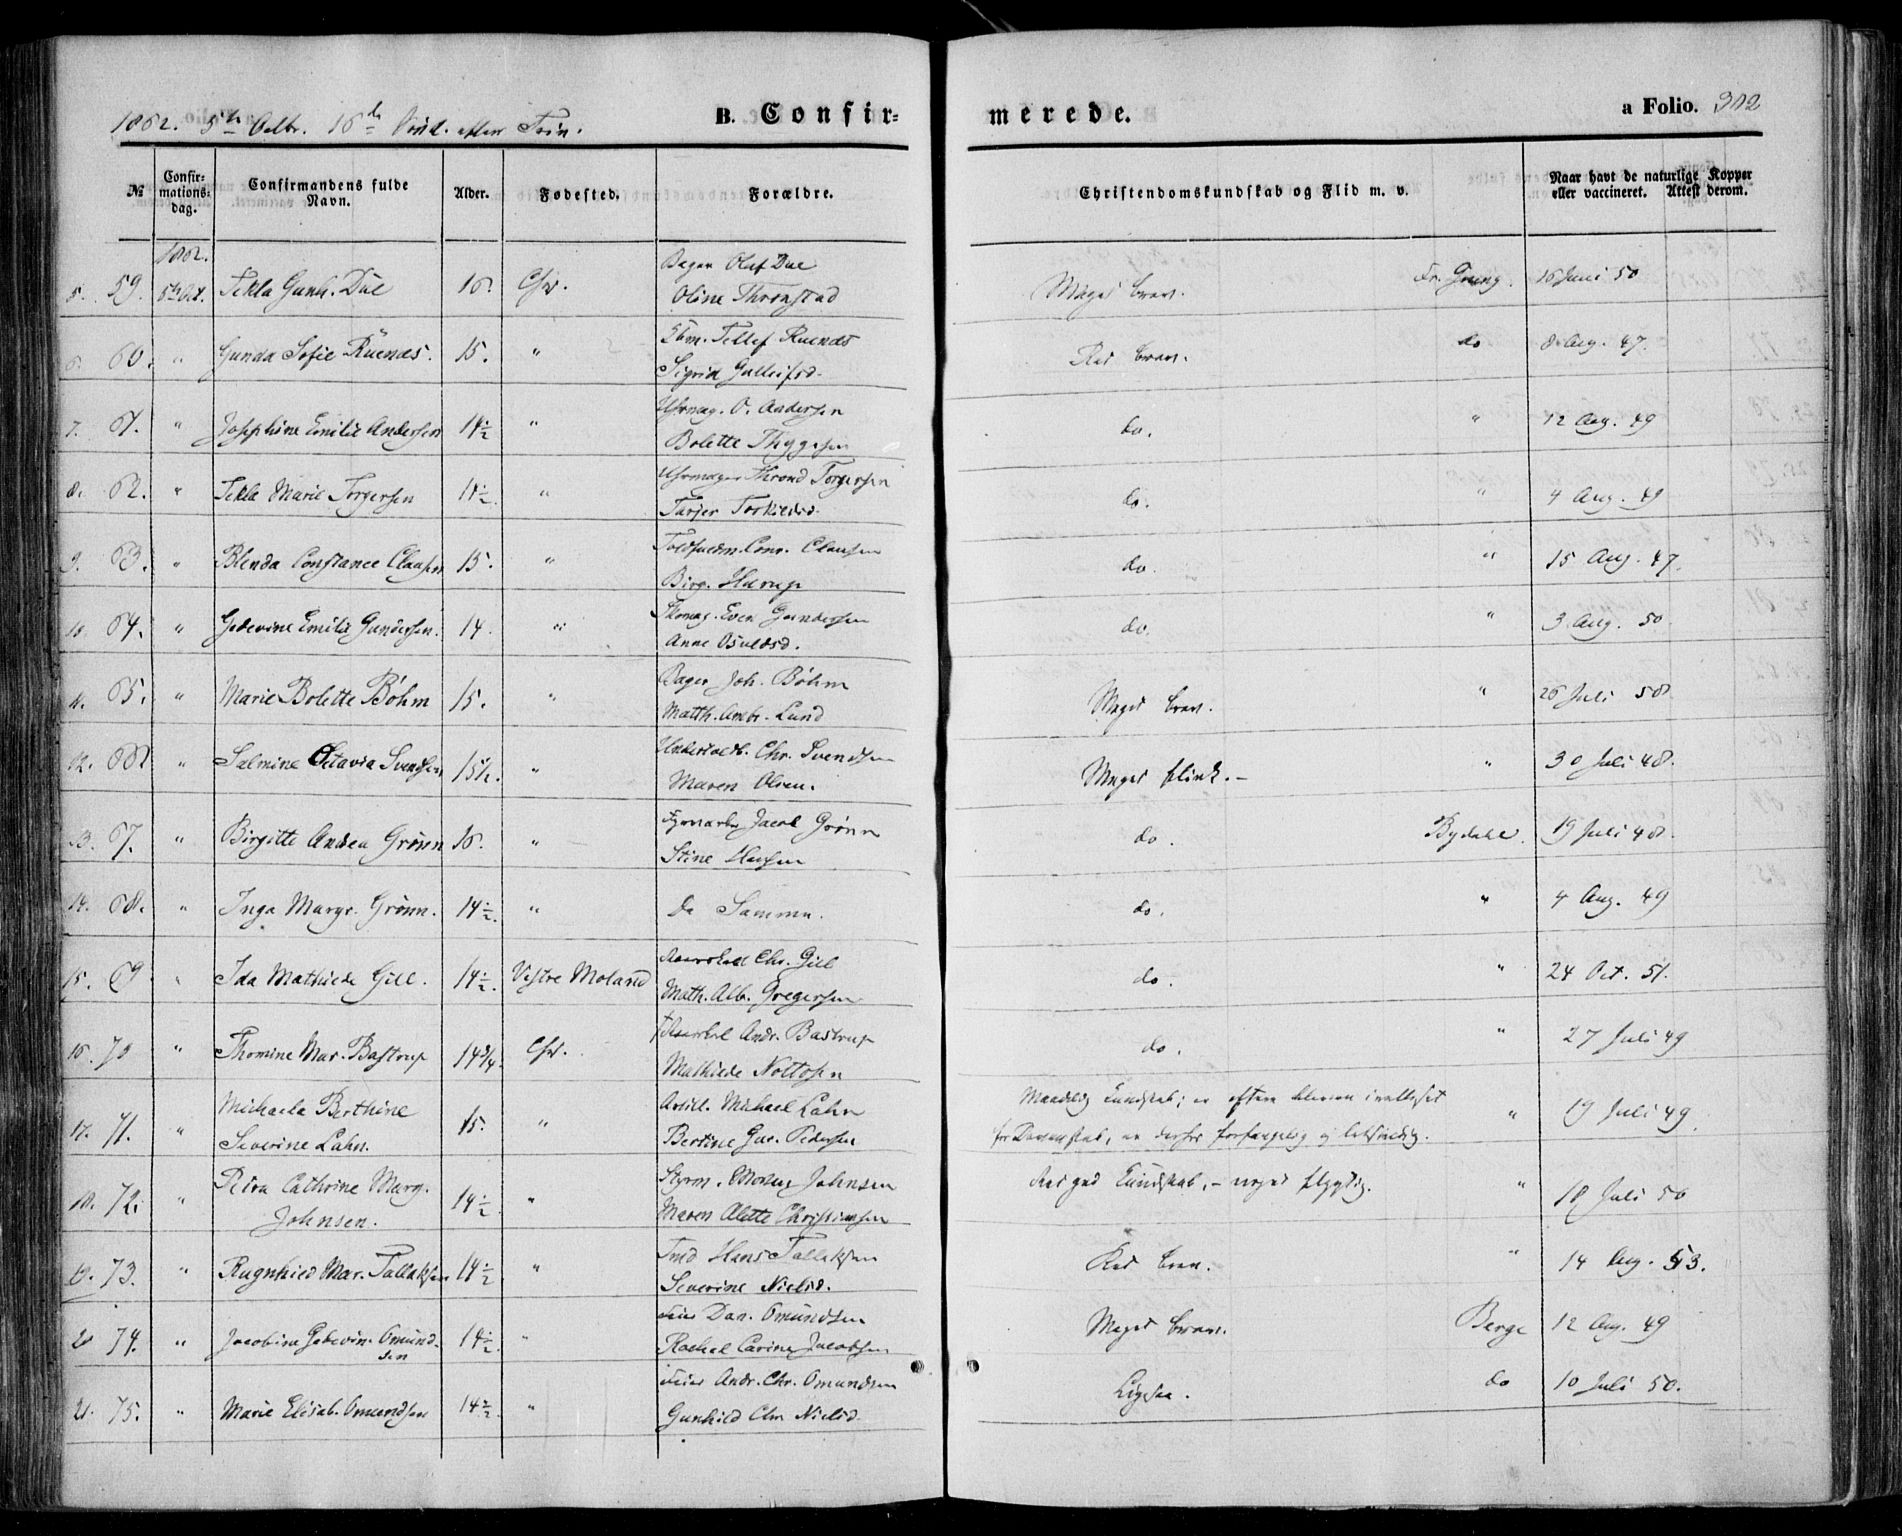 1862. 5te Octbr. 16de Sønd. efter Trin.
B. Confir-
merede.
a Folio. 302
№
Confirmations-dag.
Confirmandens fulde Navn.
Alder.
Fødested.
Forældre.
Christendomskundskab og Flid m. v.
Naar havt de naturlige Kopper eller vaccineret. Attest derom.
1862.
5. 59. 5te Oct. Tekla Gunh. Due 16. Chr. Bager Olaf Due Oline Thronstad Meget brav. Fr. Grung. 16 Juni 50
6. 60. " Gunda Sofie Ruenæs. 15. " Sbm. Tellef Ruenæs Sigrid Gulleifsd. brav. do 8. Aug. 47.
7. 61. " Josephine Emilie Andersen 14½ " Uhrmag. O. Andersen Bolette Thygesen do. " 12 Aug. 49
8. 62. " Tekla Marie Torgersen 14½. " Uhrmager Thrond Torgersen Tarjer Torkildsd. do. " 4 Aug. 49
9. 63. " Blenda Constance Clausen 15. " Conr. Clausen Birg. Harup do. " 15 Aug. 47.
10. 64. " Gedevine Emilie Gundersen. 14. " Skomag. Even Gundersen Anne Osuldsd. do. " 3 Aug. 50
11. 65. " Marie Bolette Bøhm 15. " Bager Joh. Bøhm Matth. Ambr. Lund Meget brav. " 26 Juli 50.
12. 66 " Salmine Octavia Svendsen 15½. " Chr. Svendsen Maren Olsen. Meget flink. - " 30 Juli 48.
13. 67. " Birgitte Andrea Grønn 16. " Jacob Grønn Stine Hansen do. Bydahl. 19 Juli 48.
14. 68. " Inga Margr. Grønn. 14½. " De Samme. do. " 4 Aug. 49
15. 69 " Ida Mathilde Gill. 14½. Vestre Moland Chr. Gill Math. Alb. Gregersen do. " 24 Oct. 51.
16. 70 " Thomine Mar. Bastrup 14¾. Chr. Andr. Bastrup Mathilde Nottosen do. " 27 Juli 49
17. 71. " Michaela Berthine Severine Lahn. 15. " Artill. Michael Lahn Bertine Gur. Pedersen Maadelig Kundskab; er oftere bleven irettesat for Dovenskab, er derfor forfængelig og letsindig. " 19 Juli 49.
18. 72. " Petra Cathrine Marg. Johnsen. 14½ " Styrm. Johnsen Maren Alette Christiansen god Kundskab, - noget flygtig. " 18 Juli 50
19. 73. " Rugnhild Mar. Tallaksen 14½ " Hans Tallaksen Severine Nielsd. brav. " 14 Aug. 53.
20 74. " Jacobine Gedevin. Omundsen 14½. " Feier Dan. Omundsen Rachel Carine Jacobsen Meget brav. Berge 12 Aug. 49
21. 75. " Marie Elisab. Omundsen 14½ " Feier Andr. Chr. Omundsen Gunhild Chr. Nielsd. Ligesaa. do 10 Juli 50.